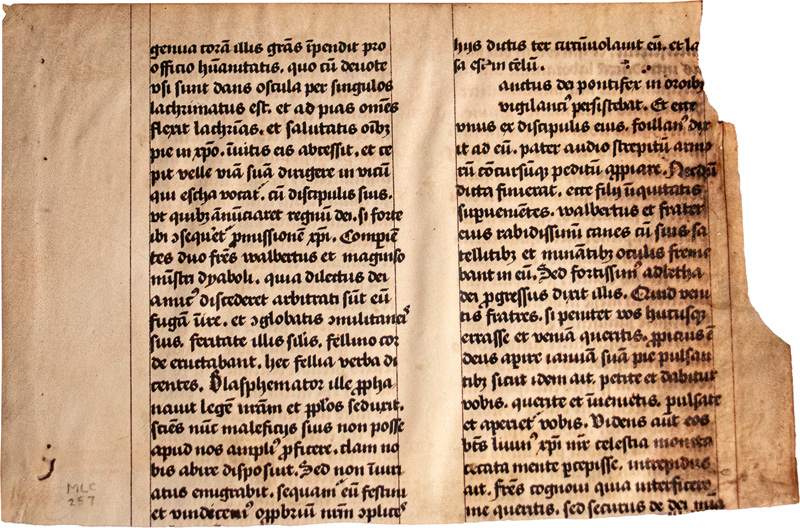 genua corā illis grās īpendit pro
officio hūanitatis. quo cū deuote
vsi sunt dans oscula per singulos
lachrimatus est. et ad pias om̄es
flexit lachrīas. et salutatis oībꝫ
pie in xp̄o. īuitis eis abcessit. et ce
pit velle viā suā dirigere in vicū
qui escha vocat᷑. cū discipulis suis.
vt quibꝫ ānūciaret regnū dei. si forte
ibi ↄsequet᷑ ꝓmissionē xp̄i. Comꝑiē
tes duo fr̄es walbertus et maginso
mīstri dyaboli. quia dilectus dei
amicꝰ discederet arbitrati sūt eū
fugā īire. et ↄglobatis ↄmilitanciꝰ
suis. feritate illis sil̄is. fellino cor
de eructabant. hec fellia verba di
centes. Blasphemator ille ꝓpha
nauit legē nr̄am et pp̄los seduxit.
sciēs nūc maleficijs suis non posse
apud nos ampliꝰ ꝓficere. clam no
bis abire disposuit. Sed non īuiti
atus emigrabit. sequam᷑ eū festini
et vindicem᷑ opp̄briū nr̄m
hijs dictis ter circūuolauit eū. et la
sa est in celū.
auctus dei pontifex in oroibꝫ
vigilanciꝰ persistebat. Et ecce
vnus ex discipulis eius. foillanꝰ dix
it ad eū. pater audio strepitū armo
rū cōcursūqꝫ peditū appīare. Necdū
dicta finierat. ecce filij īiquitatis
supueniētes. walbertus et frater
eius rabidissimi canes cū suis sa
tellitibꝫ et minātibꝫ oculis freme
bant in eū. Sed fortissimꝰ adletha
dei ꝓgressus dixit illis. Quid veni
tis fratres. si penitet vos hucusqꝫ
errasse et veniā queritis. ꝓpicius ē
deus apire ianuā suā pie pulsan
tibꝫ sicut idem ait. petite et dabitur
vobis. querite et īuenietis. pulsate
et aperiet᷑ vobis. Videns aūt eos
bt̄s liuinꝰ xp̄i mr̄ celestia monita
cecata mente ꝑcepisse. intrepidus
ait. fr̄es cognoui quia interficere
me queritis. sed securus de dei
MLC
257